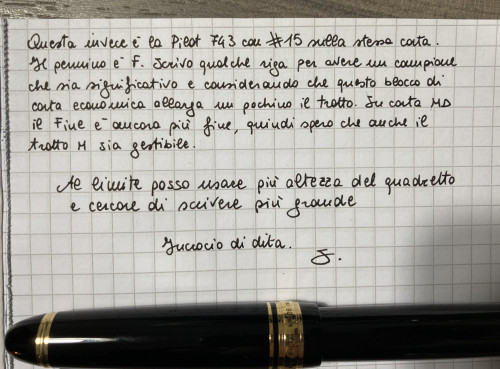 Questa invece è la Pilot 743 con #15 sulla stessa carta.
Il pennino è F. Scrivo qualche riga per avere un campione
che sia significativo e considerando che questo blocco di
carta economica allarga un pochino il tratto. Su carta MD
il Fine è ancora più fine, quindi spero che anche il
tratto M sia gestibile.
Al limite posso usare più altezza del quadretto
e cercare di scrivere più grande
Incrocio di dita.